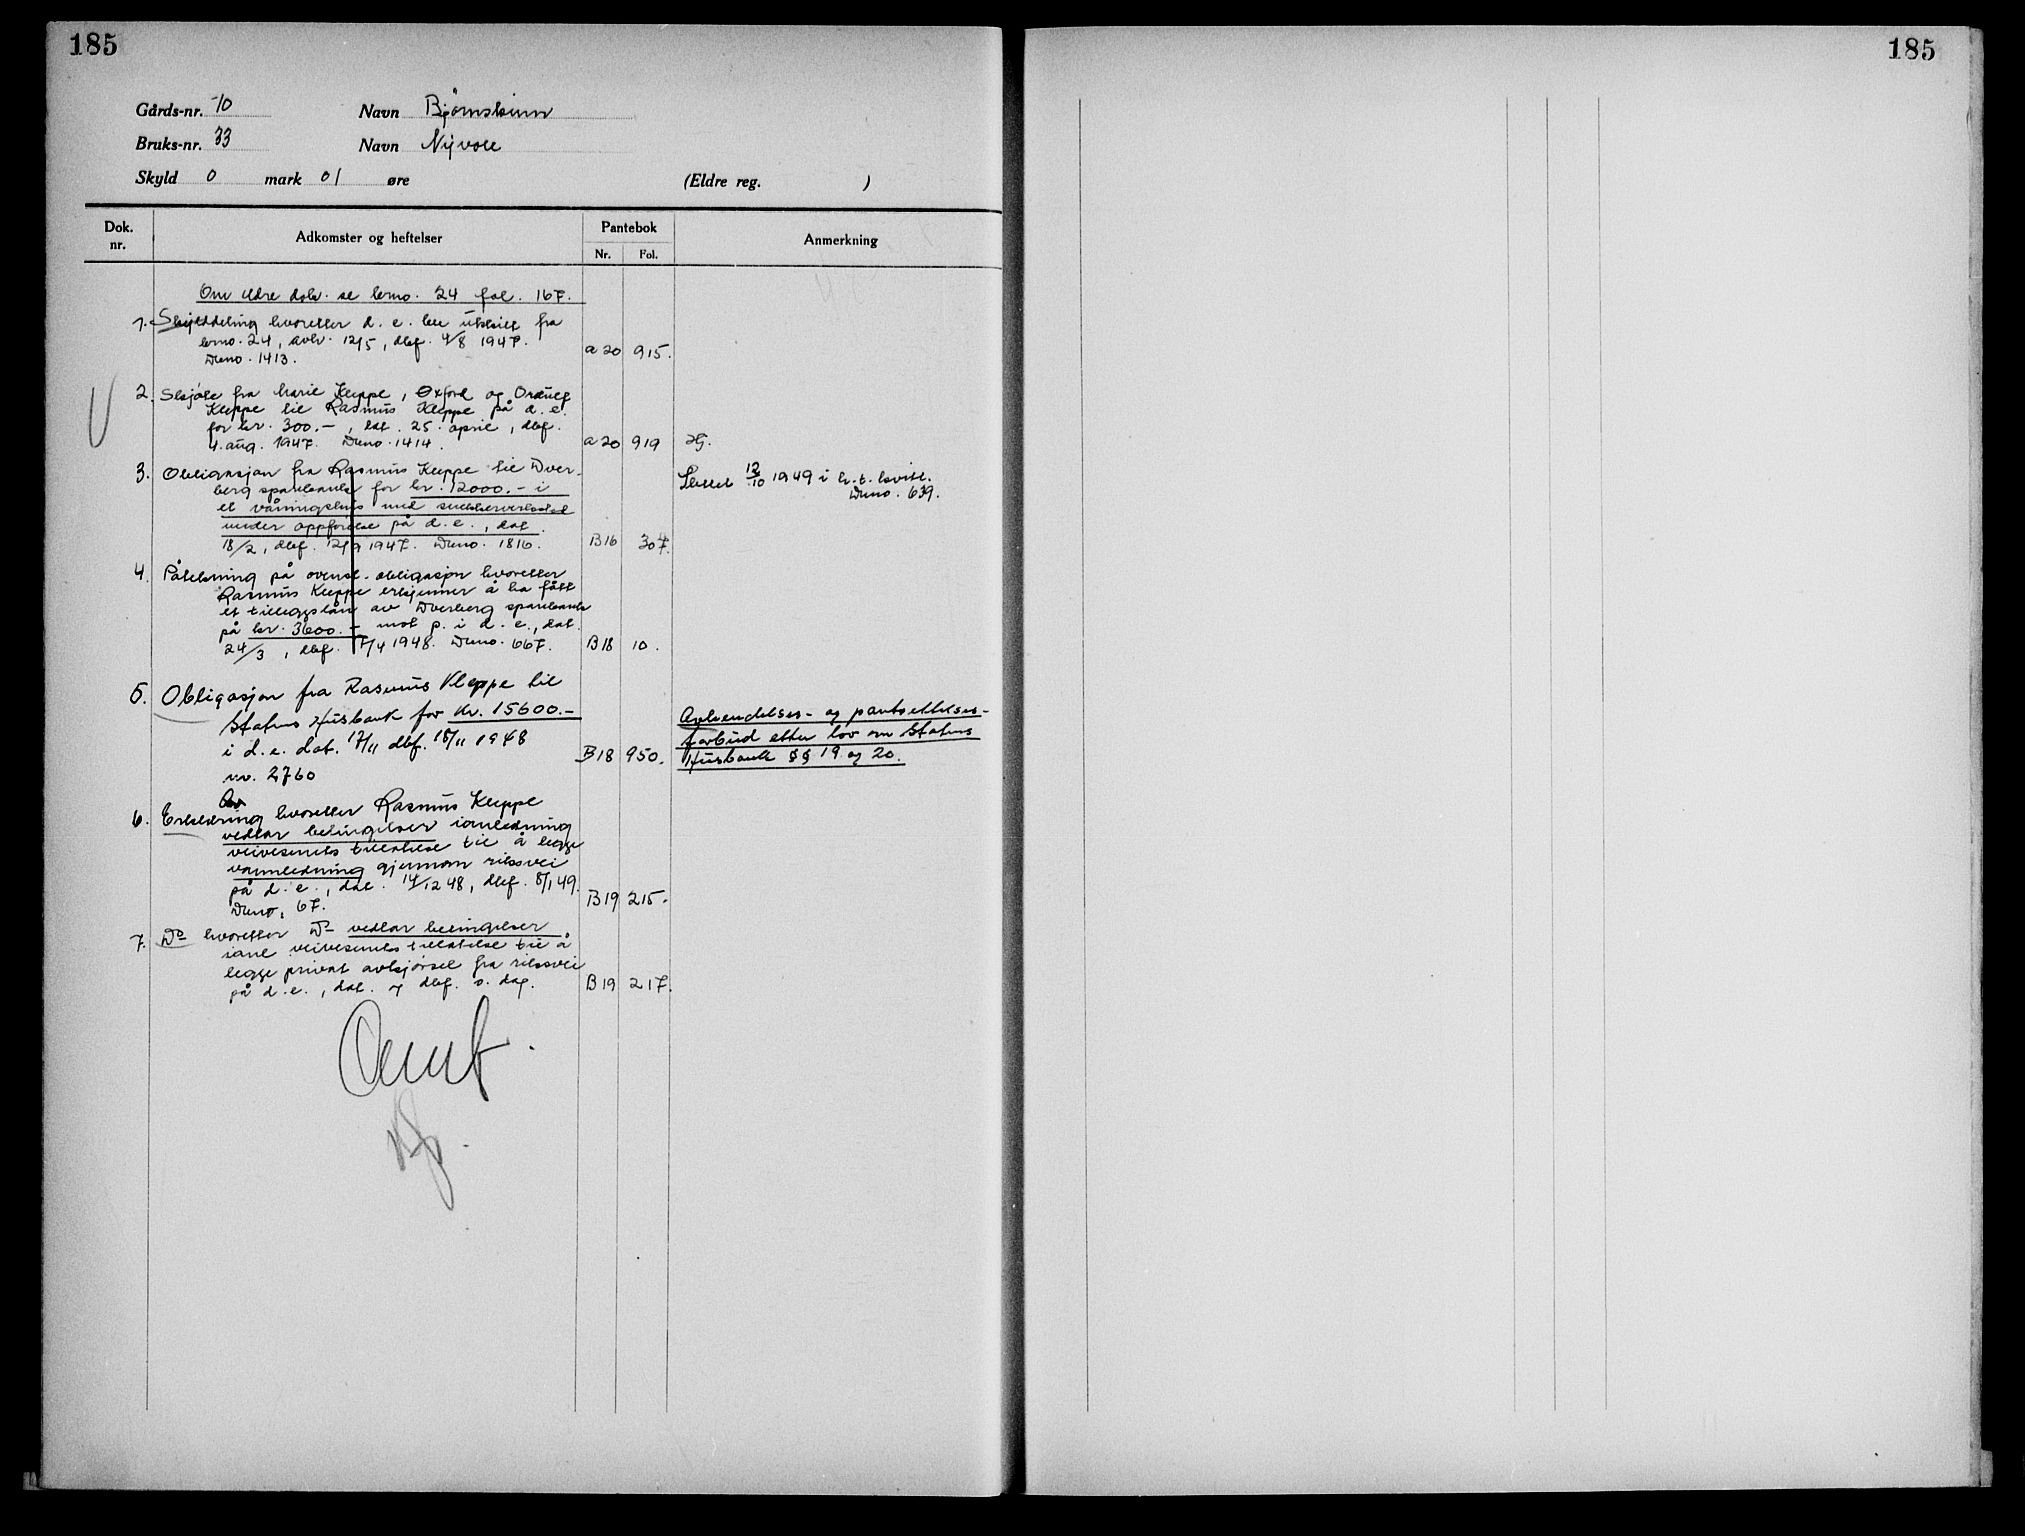 185
185
Gårds-nr. 10 Navn Bjørnskinn
Bruks-nr. 33 Navn Nyvoll
Skyld 0 mark 01 øre (Eldre reg. )
Dok. nr. Adkomster og heftelser Pantebok Nr. Fol. Anmerkning
Om eldre dok. se brno. 24 fol. 167.
1. Skylddeling hvoretter d. e. ble utskilt fra
brno. 24, avh. 12/5, dbf. 4/8 1947.
Dno. 1413. a 20 915.
2. Skjøte fra Marie Kleppe, Oxford og
Kleppe til Rasmus Kleppe på d. e.
for kr. 300.-, dat. 25. april, dbf.
4. aug. 1947. Dno. 1414. a 20 919 Hj.
3. Obligasjon fra Rasmus Kleppe til Dver-
berg sparebank for kr. 12000.- i
et våningshus med snekkerverksted
under oppførelse på d. e., dat.
18/2, dbf. 12/9 1947. Dno. 1816. B16 307.
Slettet 12/10 1949 i h. t. kvitt.
Dno. 639.
4. Påtekning på ovenst. obligasjon hvoretter
Rasmus Kleppe erkjenner å ha fått
et tilleggslån av Dverberg sparebank
på kr. 3600.- mot p. i d. e., dat.
24/3, dbf. 7/4 1948. Dno. 667. B18 10.
5. Obligasjon fra Rasmus Kleppe til
Statens Husbank for kr. 15600.-
i d. e. dat. 17/11 dbf. 18/11 1948
nr. 2760 B18 950.
Avhendelses- og pantsettelses-
forbud etter lov om Statens
Husbank §§ 19 og 20.
6. Erklæring hvoretter Rasmus Kleppe
vedtar betingelser i anledning
veivesenets tillatelse til å legge
vannledning gjennom riksvei
på d. e., dat. 14/12 48, dbf. 8/1 49.
Dno. 67. B19 215.
7. Do hvoretter Do vedtar betingelser
i anl veivesenets tillatelse til å
legge privat avkjørsel fra riksvei
på d. e., dat. og dbf. s. dag. B19 217.